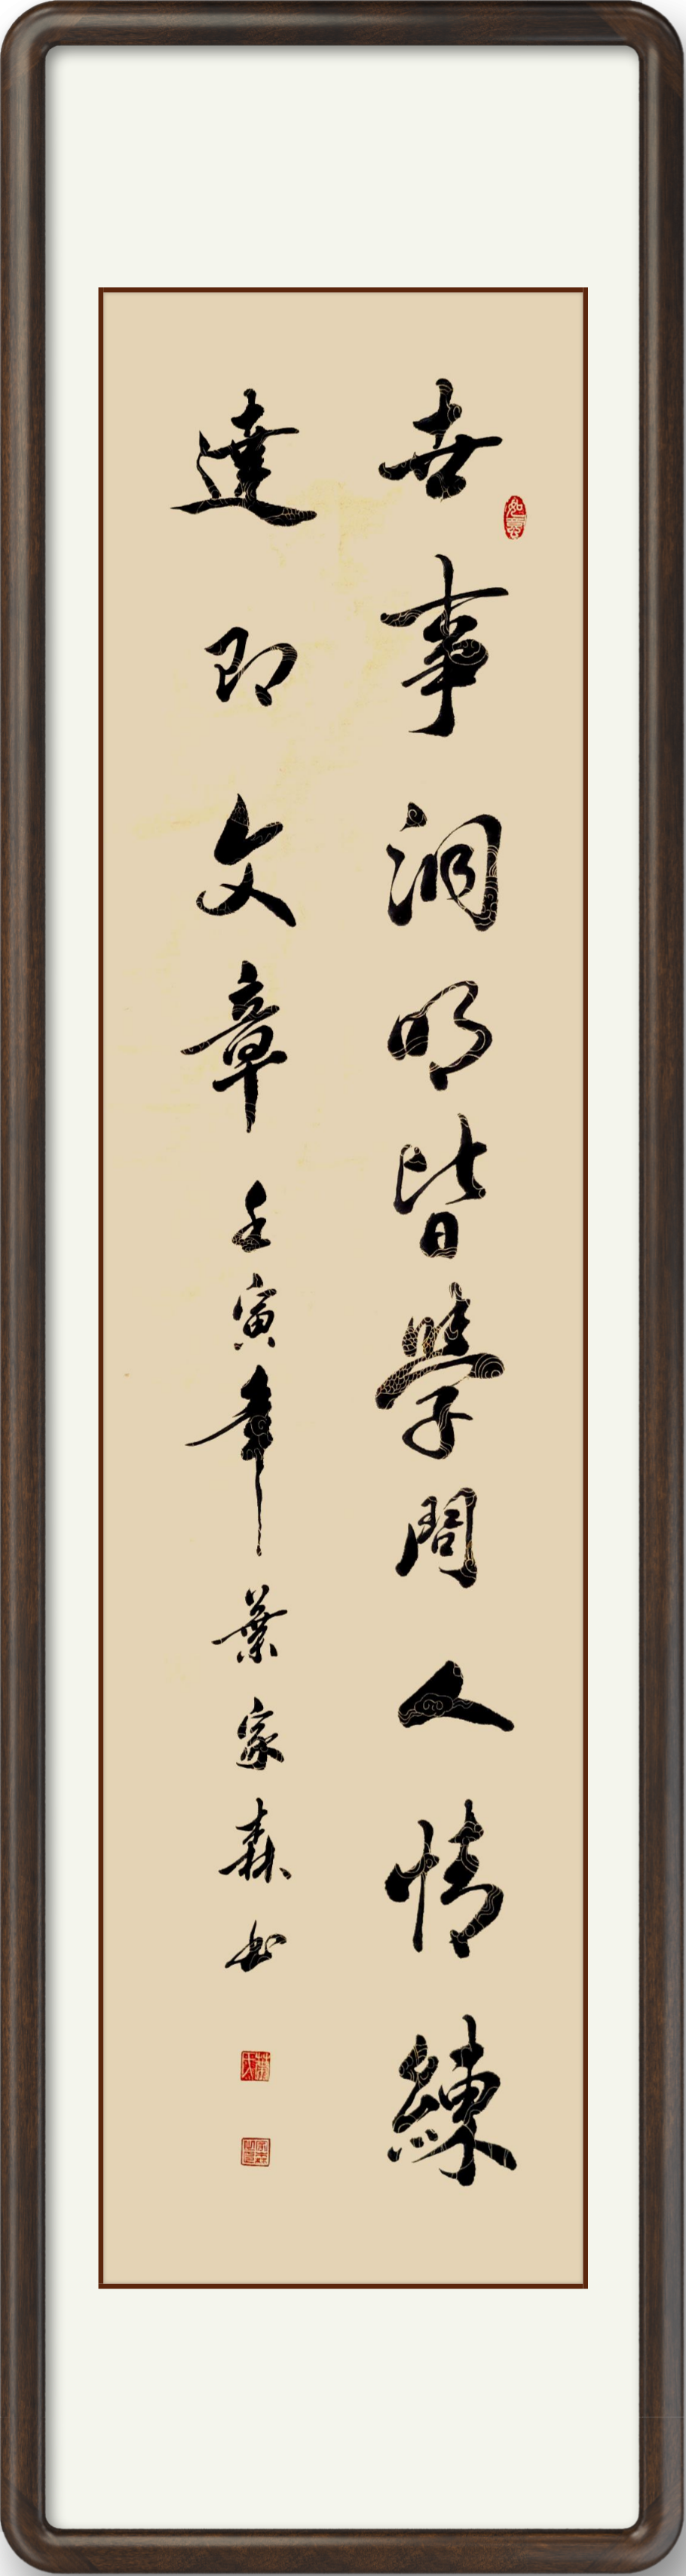 世事洞明皆學問人情練
達即文章壬寅年葉家森書